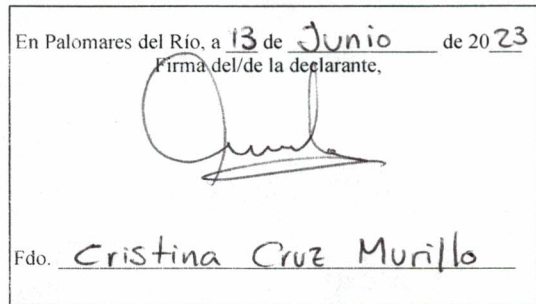 En Palomares del Río, a 13 de Junio de 2023
Firma del/de la declarante,
Fdo. Cristina Cruz Murillo